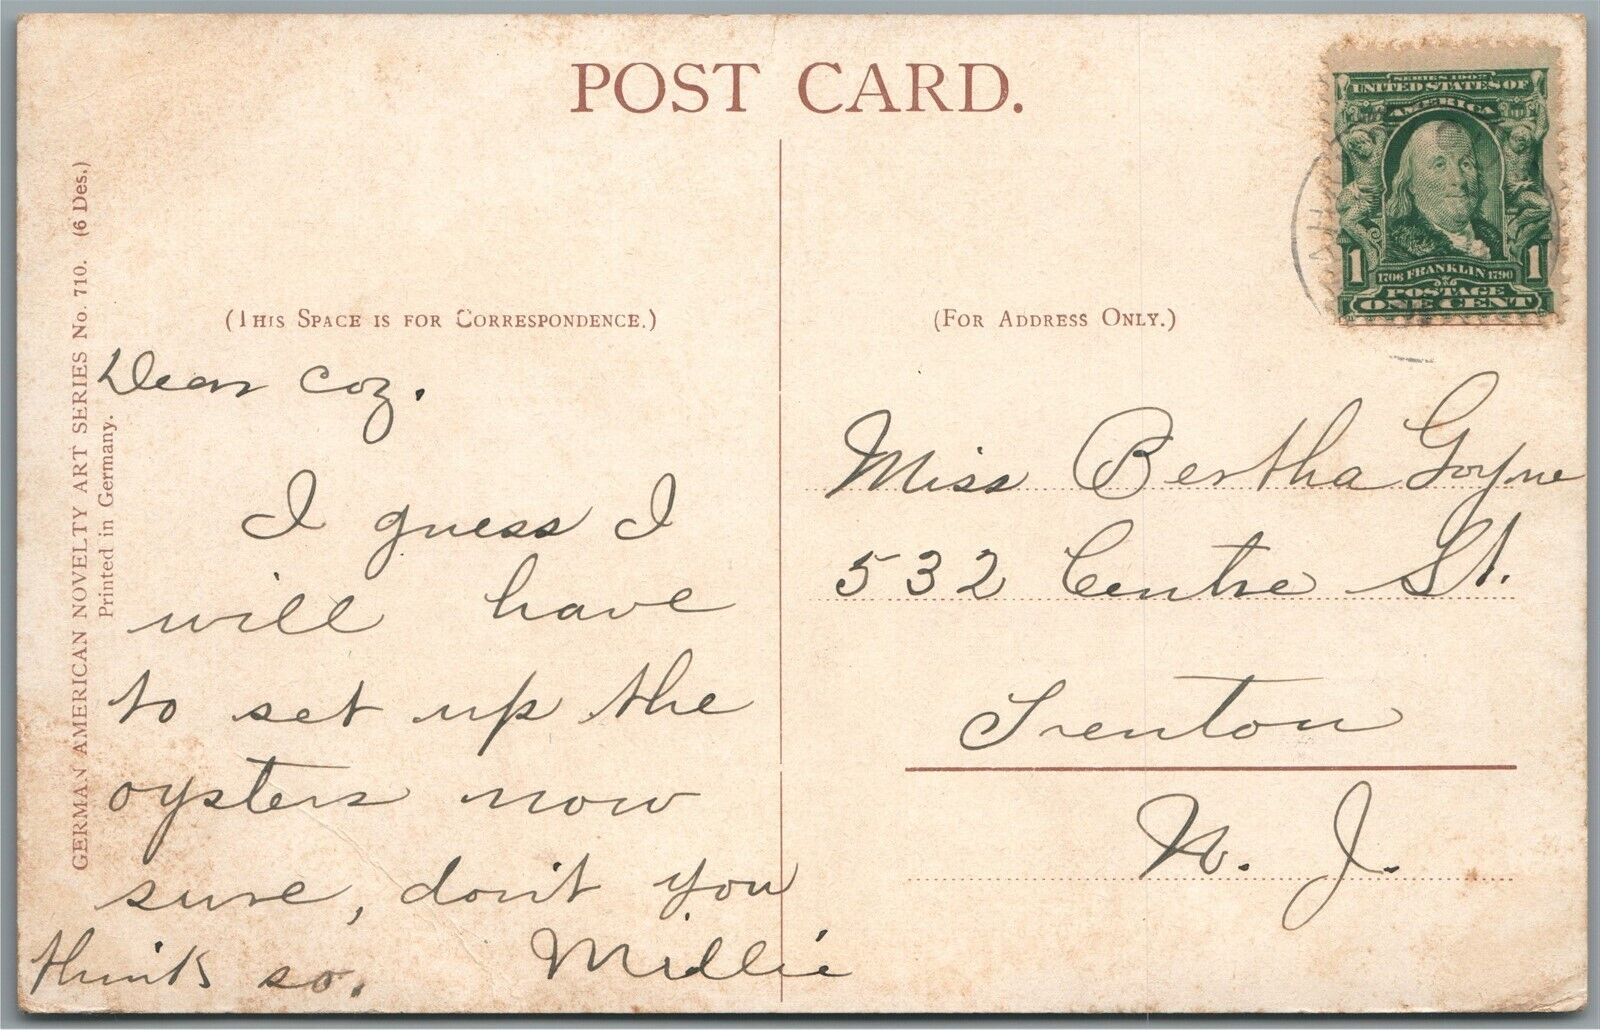 POST CARD.
GERMAN AMERICAN NOVELTY ART SERIES No. 710. (6 Des.)
Printed in Germany.
(THIS SPACE IS FOR CORRESPONDENCE.)
Dear Coz.
I guess I
will have
to set up the
oysters now
sure, don't you
think so. Millie
(FOR ADDRESS ONLY.)
SERIES 1902
UNITED STATES OF
AMERICA
1 1706 FRANKLIN 1790 1
POSTAGE
ONE CENT
Miss Bertha Goyne
532 Centre St.
Trenton
N. J.